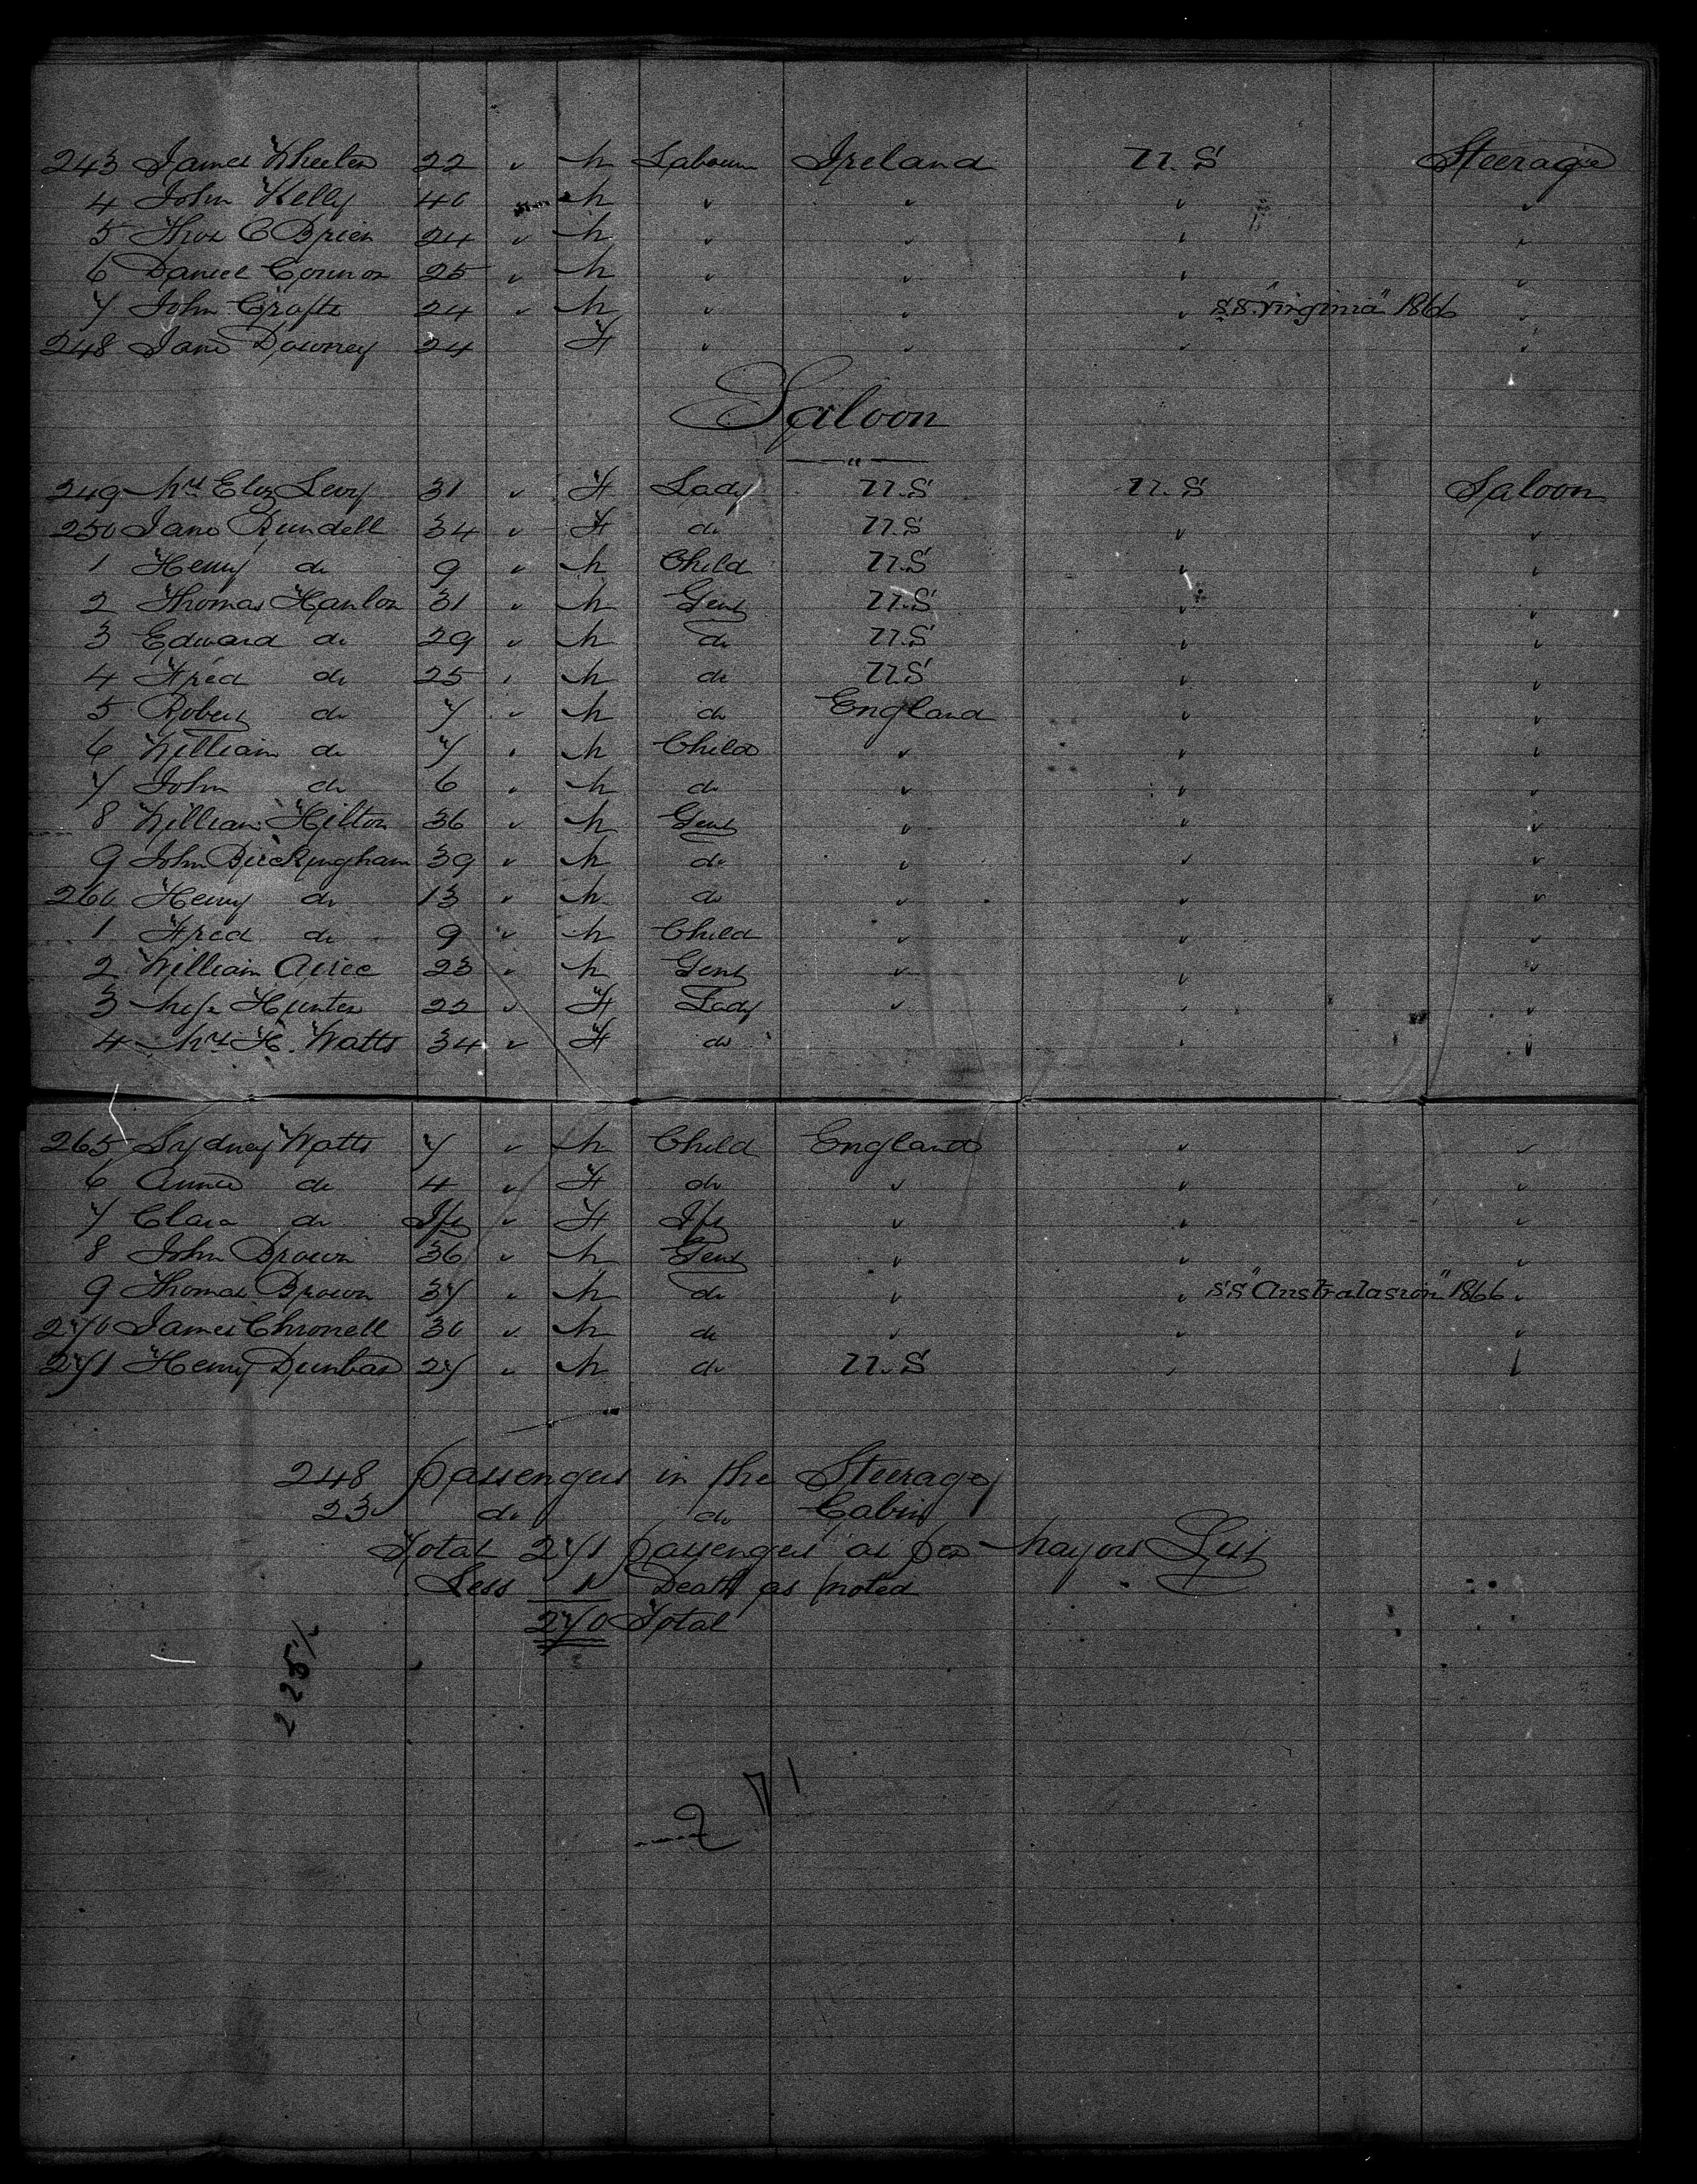 243 James Wheeler 22 " M Labourer Ireland U.S Steerage
4 John Kelly 40 M " " " "
5 Thos O Brien 24 " M " " " "
6 Daniel Connor 25 " M " " " "
7 John Crofts 24 " M " " " S.S. "Virginia" 1866 "
248 Jane Downey 24 F " " " "
Saloon
249 Mrs Eliz Levy 31 " F Lady U.S U.S Saloon
250 Jane Rundell 34 " F do U.S " "
1 Henry do 9 " M Child U.S " "
2 Thomas Hanlon 31 " M Gent U.S " "
3 Edward do 29 " M do U.S " "
4 Fred do 25 " M do U.S " "
5 Robert do 7 " M do England " "
6 William do 7 " M Child " " "
7 John do 6 " M do " " "
8 William Hilton 36 " M Gent " " "
9 John Buckingham 39 " M do " " "
260 Henry do 13 " M do " " "
1 Fred do 9 " M Child " " "
2 William 23 " M Gent " " "
3 Miss Hunter 22 " F Lady " " "
4 Mrs H. Watts 34 " F do " "
265 Sydney Watts 7 " M Child England " "
6 Annie do 4 " F do " " "
7 Clara do Inft " F Inft " " "
8 John Brown 36 " M Gent " " "
9 Thomas Brown 37 " M do " " S.S "Australasian" 1866 "
270 James 30 " M do " " "
271 Henry Dunbar 27 " M do U.S " "
248 passengers in the Steerage
23 do do Cabin
Total 271 passengers as per Mayors List
Less 1 Death as noted
270 Total
2 25%
271